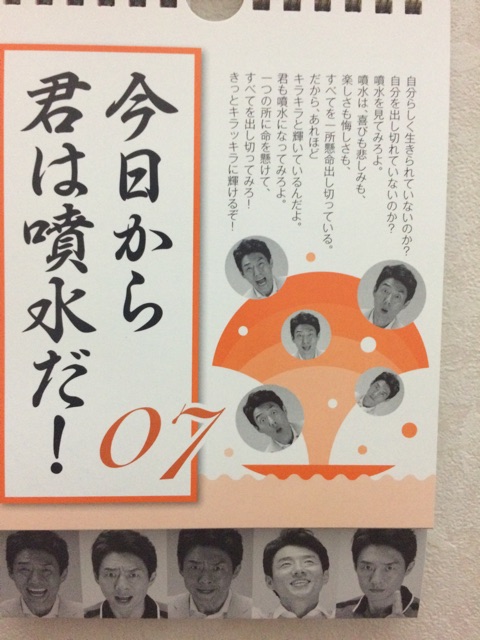 今日から
君は噴水だ！
07
自分らしく生きられていないのか？
自分を出し切れていないのか？
噴水を見てみろよ。
噴水は、喜びも悲しみも、
楽しさも悔しさも、
すべてを一所懸命出し切っている。
だから、あれほど
キラキラと輝いているんだよ。
君も噴水になってみろよ。
一つの所に命を懸けて、
すべてを出し切ってみろ！
きっとキラッキラに輝けるぞ！